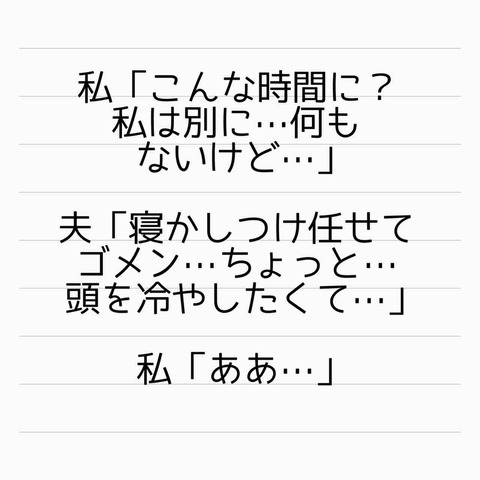 私「こんな時間に？
私は別に…何も
ないけど…」
夫「寝かしつけ任せて
ゴメン…ちょっと…
頭を冷やしたくて…」
私「ああ…」